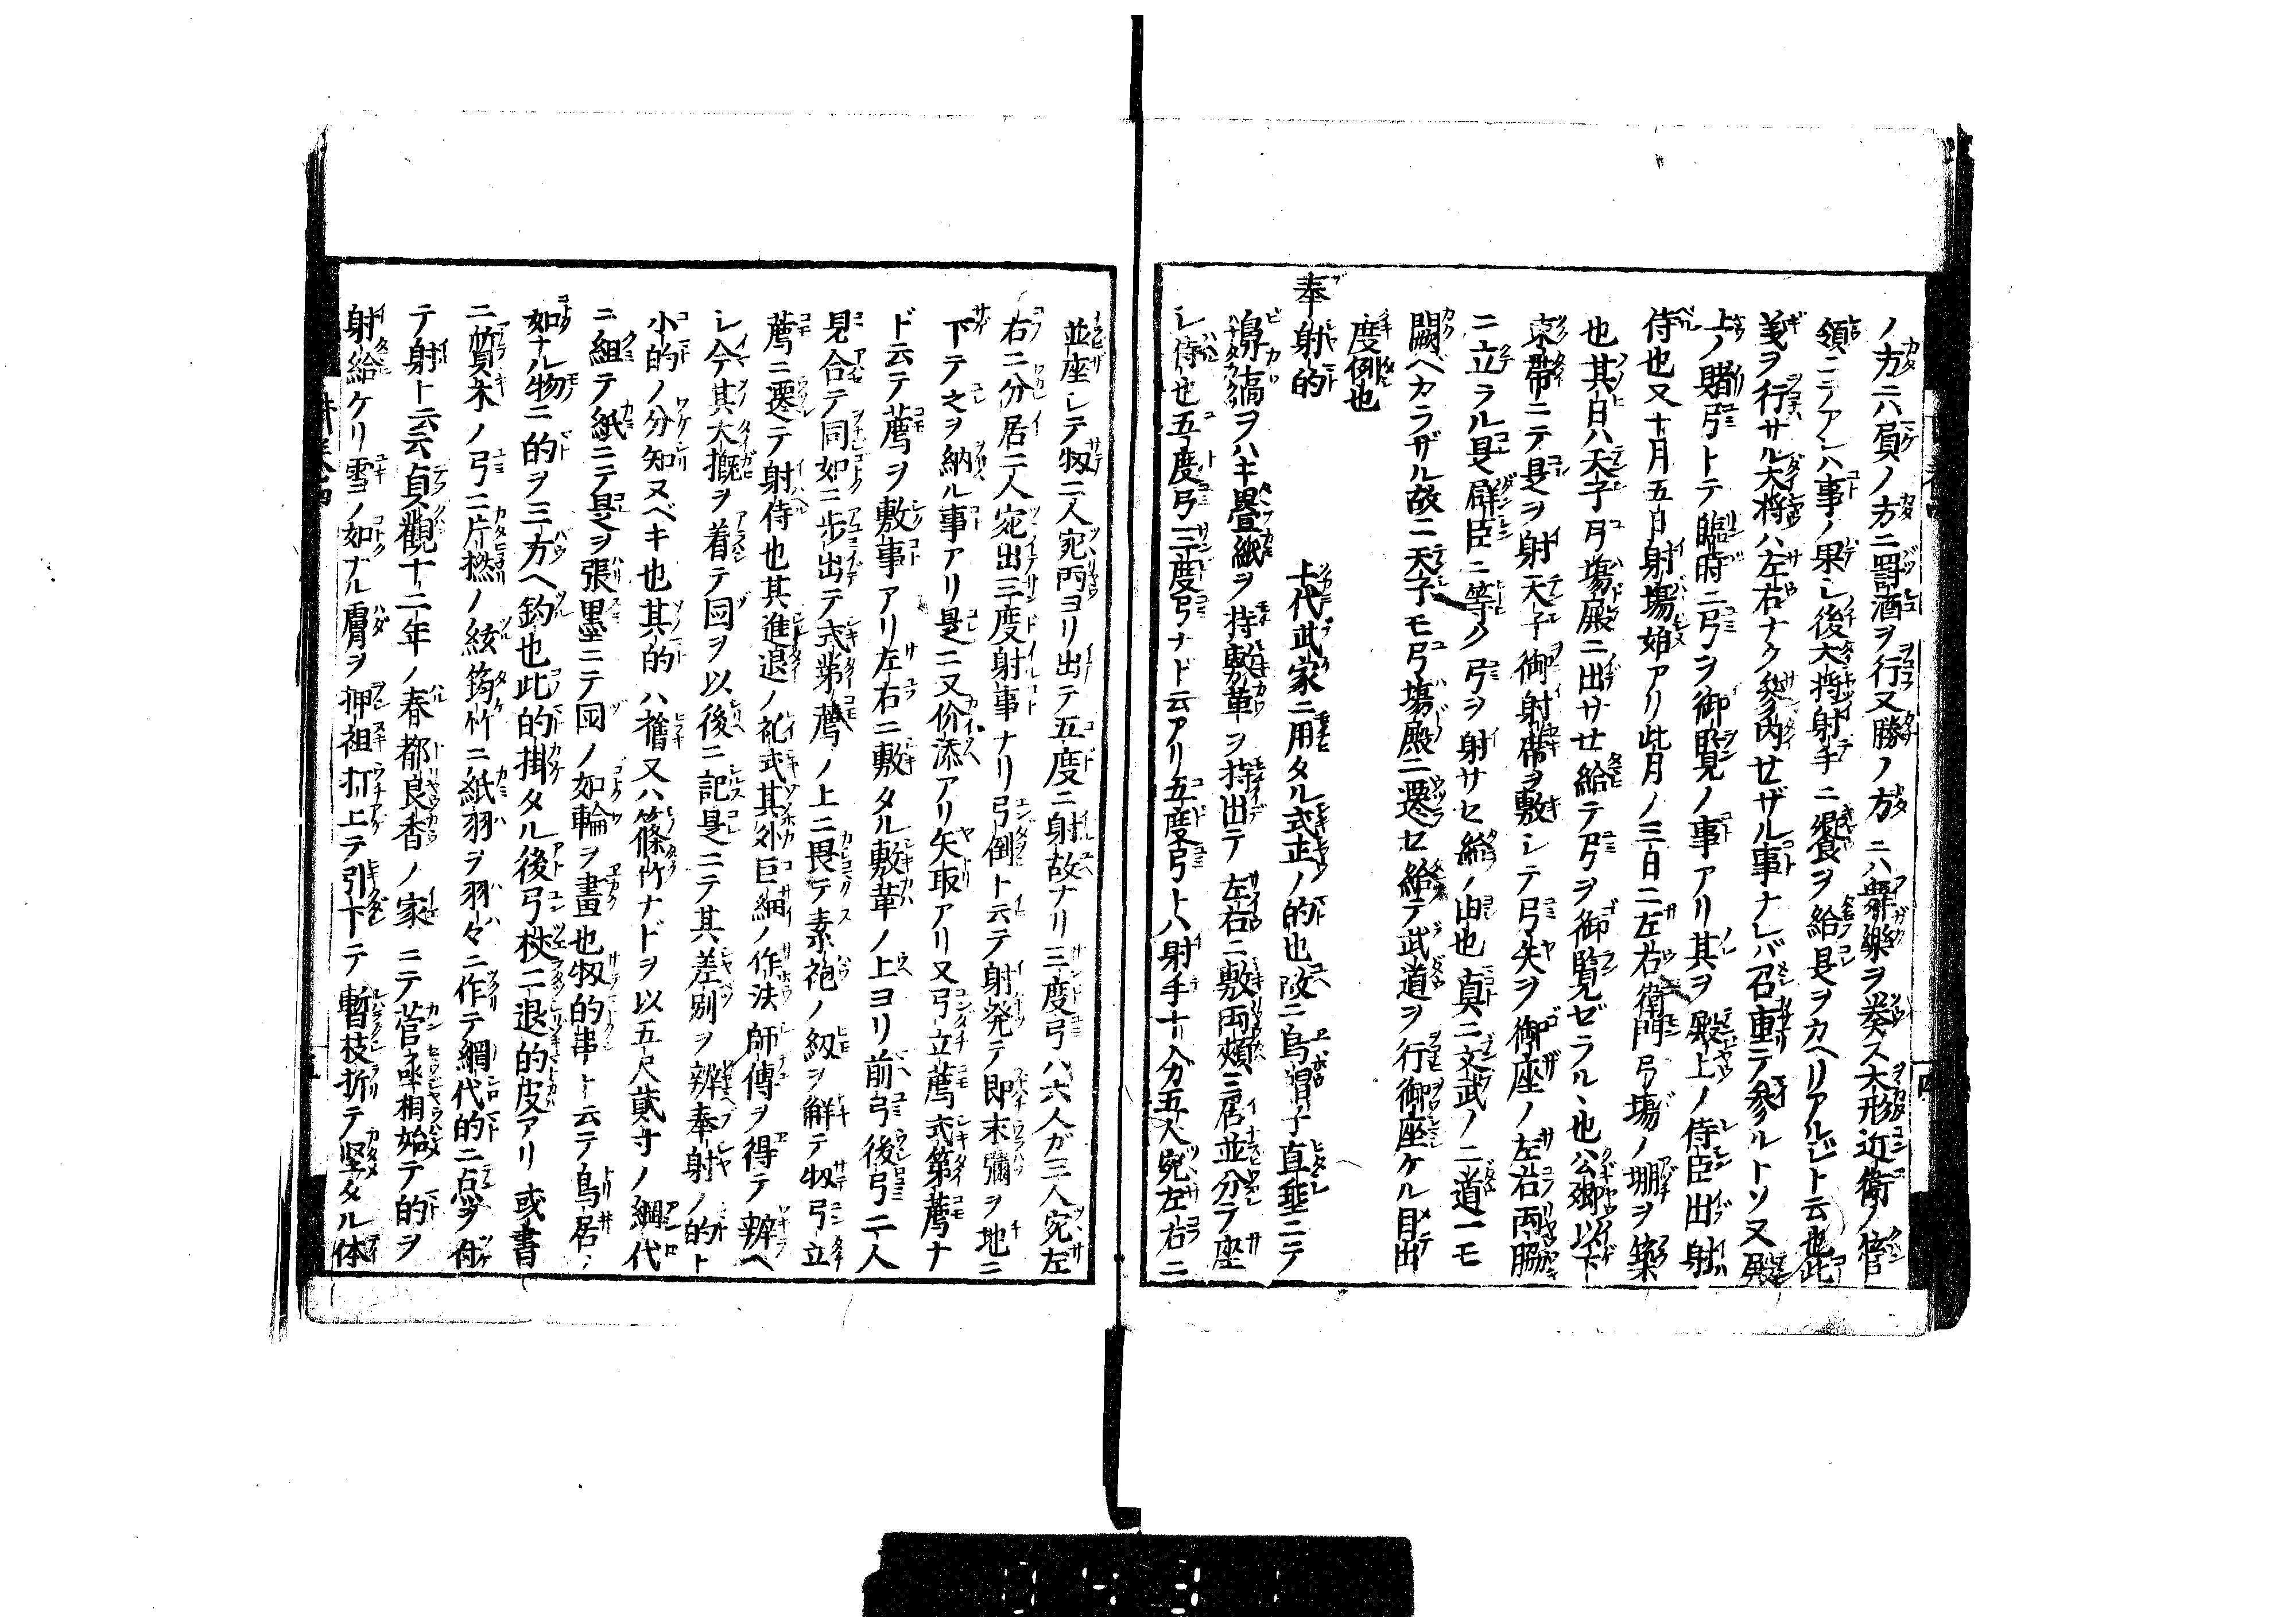 ノ方ニハ負ノ方ニ罸酒ヲ行又勝ノ方ニハ舞樂ヲ奏ス大形近衛ノ官
領ニテアレハ事ノ果シ後大将射手ニ饗ヲ給是ヲカヘリアルジト云也此
義ヲ行サル大将ハ左右ナク参内セザル事ナレバ召重テ参ルトソ又殿
上ノ賭弓トテ臨時ニ弓ヲ御覧ノ事アリ其ヲ殿上ノ侍臣出射
侍也又十月五日射場始アリ此月ノ三日ニ左右衛門弓場ノ堋ヲ築
也其日ハ天子弓場殿ニ出サセ給テ弓ヲ御覧ゼラルヽ也公卿以下
束帯ニテ是ヲ射天子御射席ヲ敷シテ弓矢ヲ御座ノ左右両脇
ニ立ラル是群臣ニ等ク弓ヲ射サセ給ノ由也真ニ文武ノ二道一モ
闕ベカラザル故ニ天子モ弓場殿ニ遷セ給テ武道ヲ行御座ケル目出
度例也
奉射的 十代武家ニ用タル式正ノ的也故ニ烏帽子直垂ニテ
鼻高ヲハキ畳紙ヲ持敷革ヲ持出テ左右ニ敷両頰ニ居並分テ座
シ侍也五度弓三度弓ナド云アリ五度弓トハ射手十人分五人宛左右ニ
並座シテ扨二人宛両ヨリ出テ五度ニ射故ナリ三度弓ハ六人ガ三人宛左
右ニ分居二人宛出三度射事ナリ弓倒ト云テ射発テ即末彌ヲ地ニ
下テ之ヲ納ル事アリ是ニ又价添アリ矢取アリ又弓立薦式第薦ナ
ド云テ薦ヲ敷事アリ左右ニ敷タル敷革ノ上ヨリ前弓後弓二人
見合テ同如ニ歩出テ式第薦ノ上ニ畏テ素袍ノ紐ヲ解テ扨弓立
薦ニ遷テ射侍也其進退ノ礼式其外巨細ノ作法師傳ヲ得テ辨ヘ
シ今其大概ヲ着テ図ヲ以後ニ記是ニテ其差別ヲ辨奉射ノ的ト
小的ノ分知ヌベキ也其的ハ檜又ハ篠竹ナドヲ以五尺貳寸ノ網代
ニ組テ紙ニテ是ヲ張墨ニテ図ノ如輪ヲ畫也扨的串ト云テ鳥居ノ
如ナル物ニ的ヲ三方ヘ釣也此的掛タル後弓杖二退的皮アリ或書
ニ質木ノ弓ニ片撚ノ絃筠竹ニ紙羽ヲ羽々ニ作テ網代的ニ点ヲ付
テ射ト云云貞觀十二年ノ春都良香ノ家ニテ菅丞相始テ的ヲ
射給ケリ雪ノ如ナル膚ヲ押袒打上テ引下テ暫枝折テ堅タル体